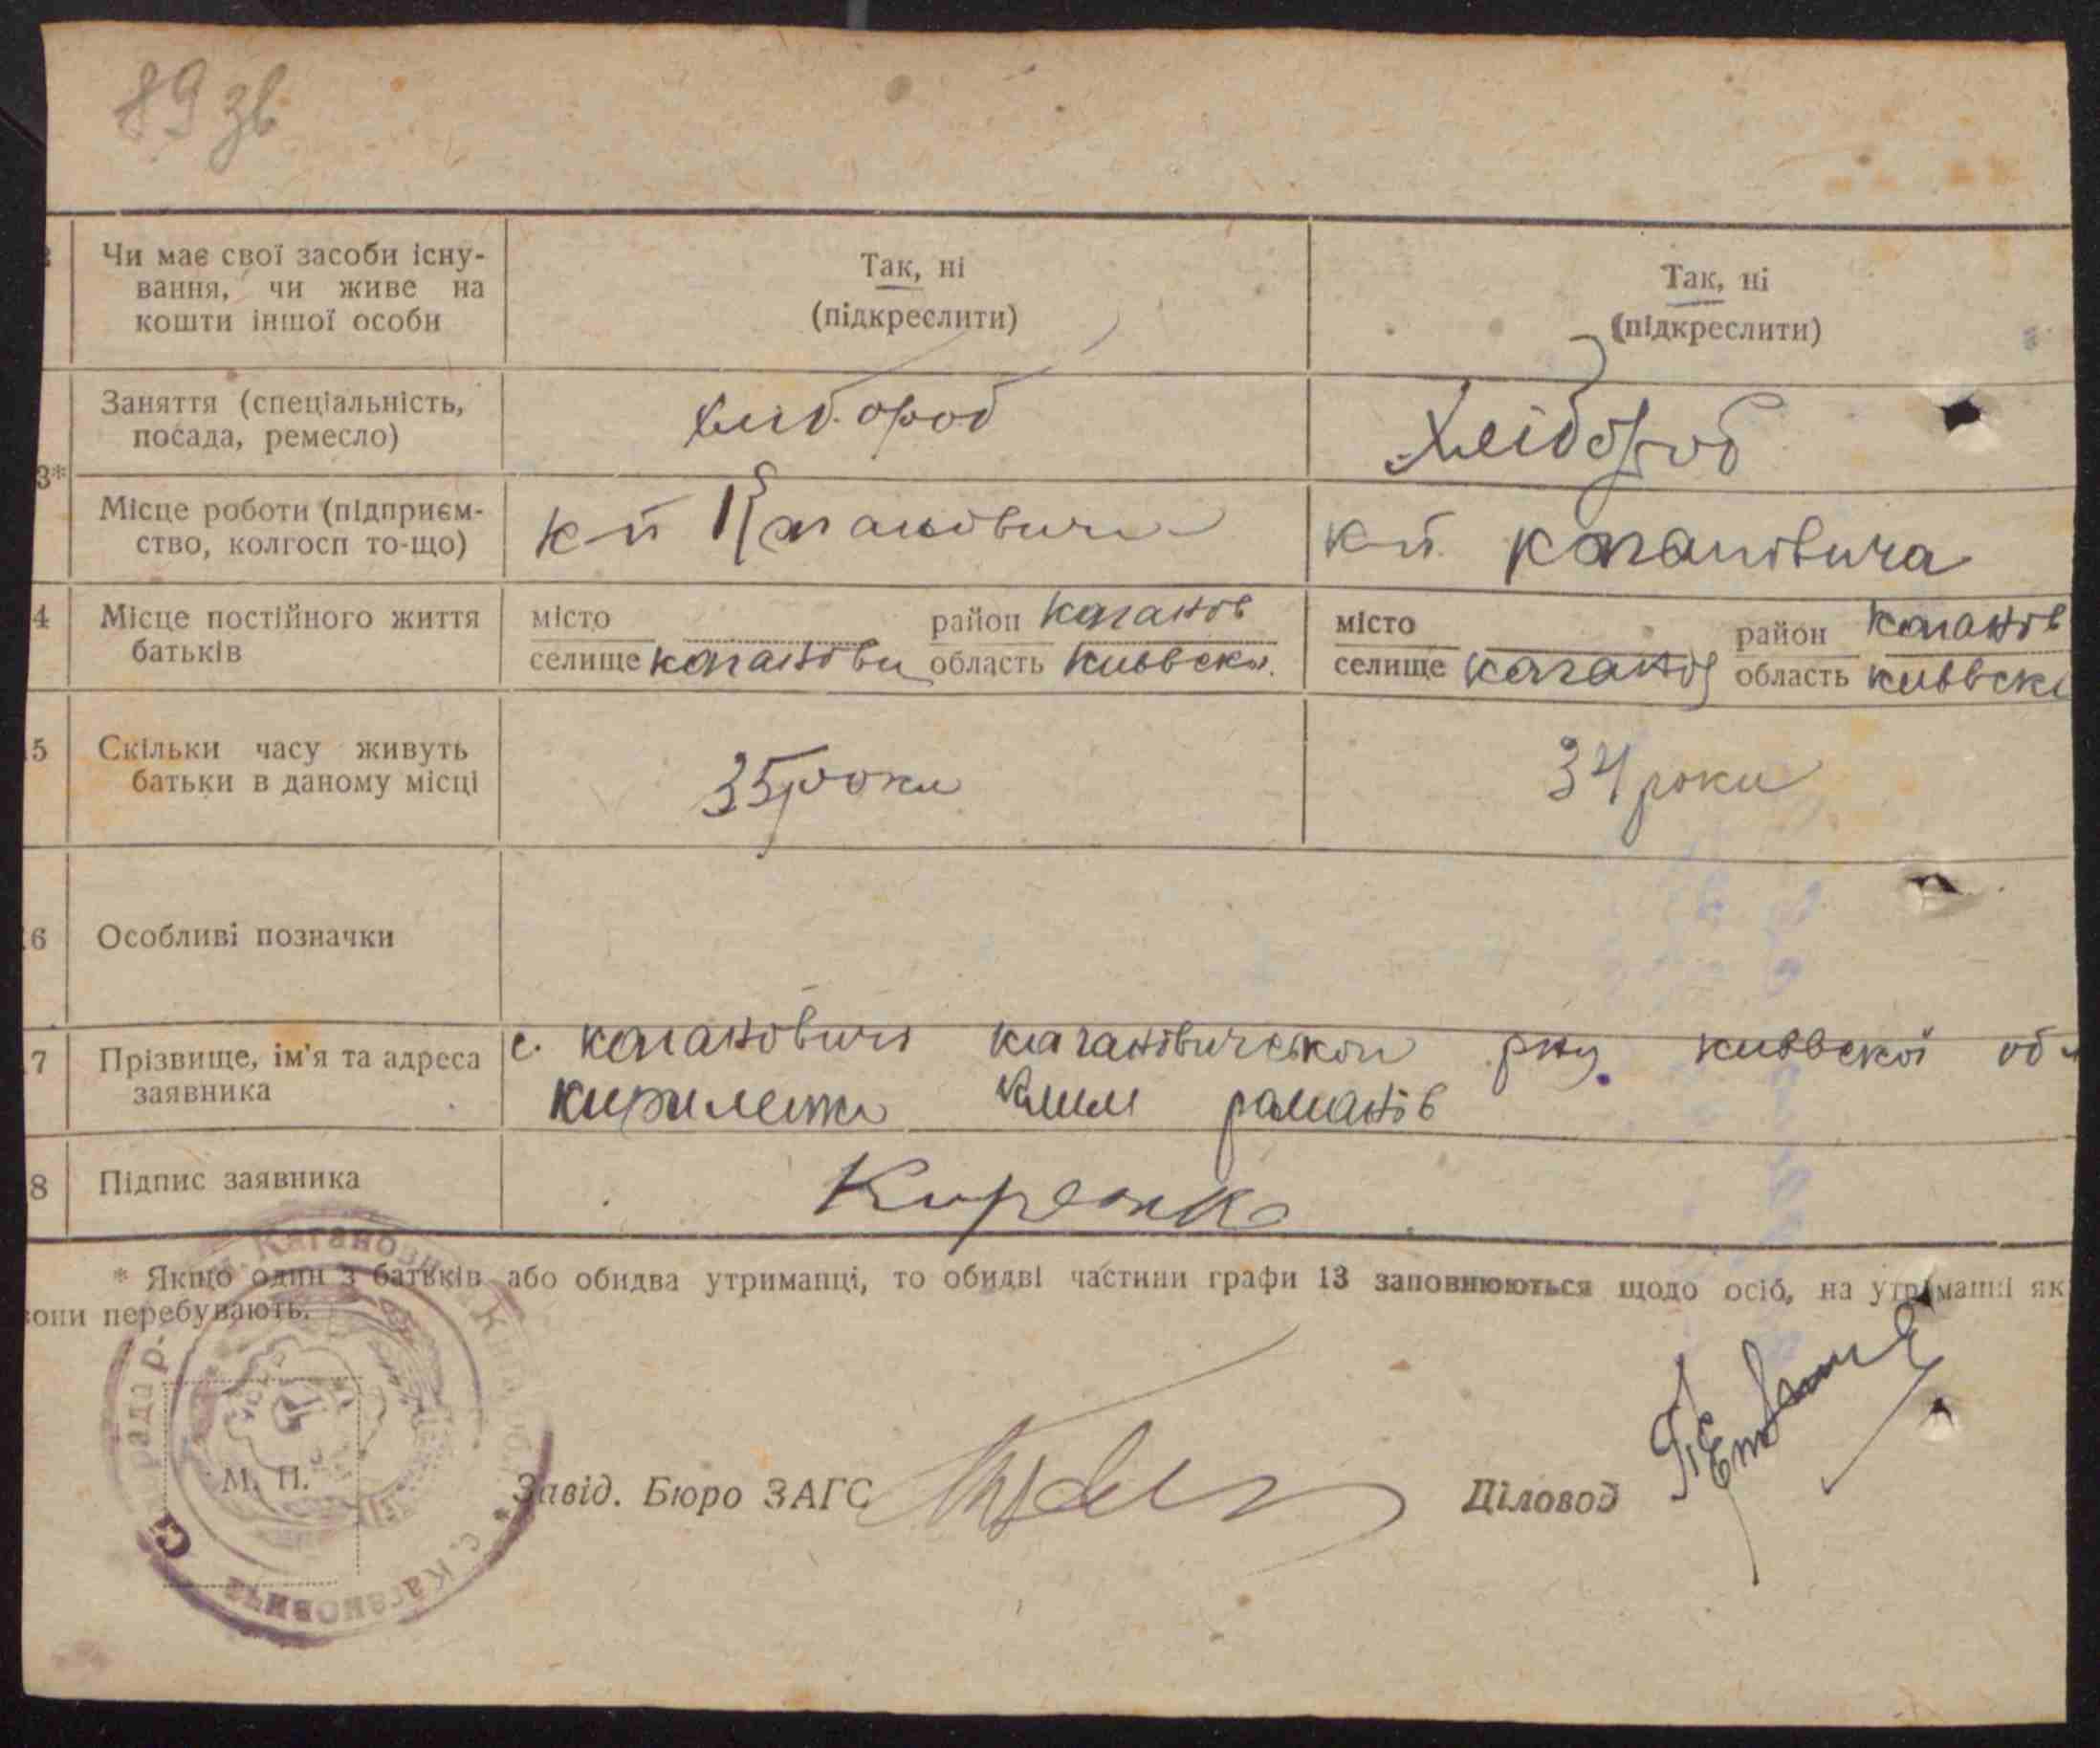 89 зв
Чи має свої засоби існу-
вання, чи живе на
кошти іншої особи
Так, ні
(підкреслити)
Так, ні
(підкреслити)
3*
Заняття (спеціальність,
посада, ремесло)
хліб.ороб
Хлібороб
Місце роботи (підприєм-
ство, колгосп то-що)
к-п Кагановича
к-п. Кагановича
4
Місце постійного життя
батьків
місто
район Каганов
селище Кагановичи область Київвськ.
місто
район Каганов
селище Каганов область Київвськ
5
Скільки часу живуть
батьки в даному місці
35 роки
34 роки
6
Особливі позначки
7
Прізвище, ім'я та адреса
заявника
с. Кагановичі Кагановичськои рну. Київвскої об
Кириленко Клим Раманов
8
Підпис заявника
* Якщо один з батьків або обидва утриманці, то обидві частини графи 13 заповнюються щодо осіб, на утриманні як
вони перебувають.
М. П.
Завід. Бюро ЗАГС
Діловод
с. Кагановича